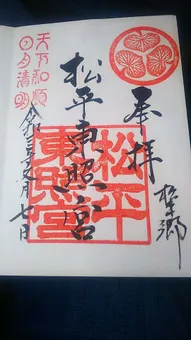 奉拝
松平郷
松平東照宮
松平
東照宮
天下和順
日月清明
七日